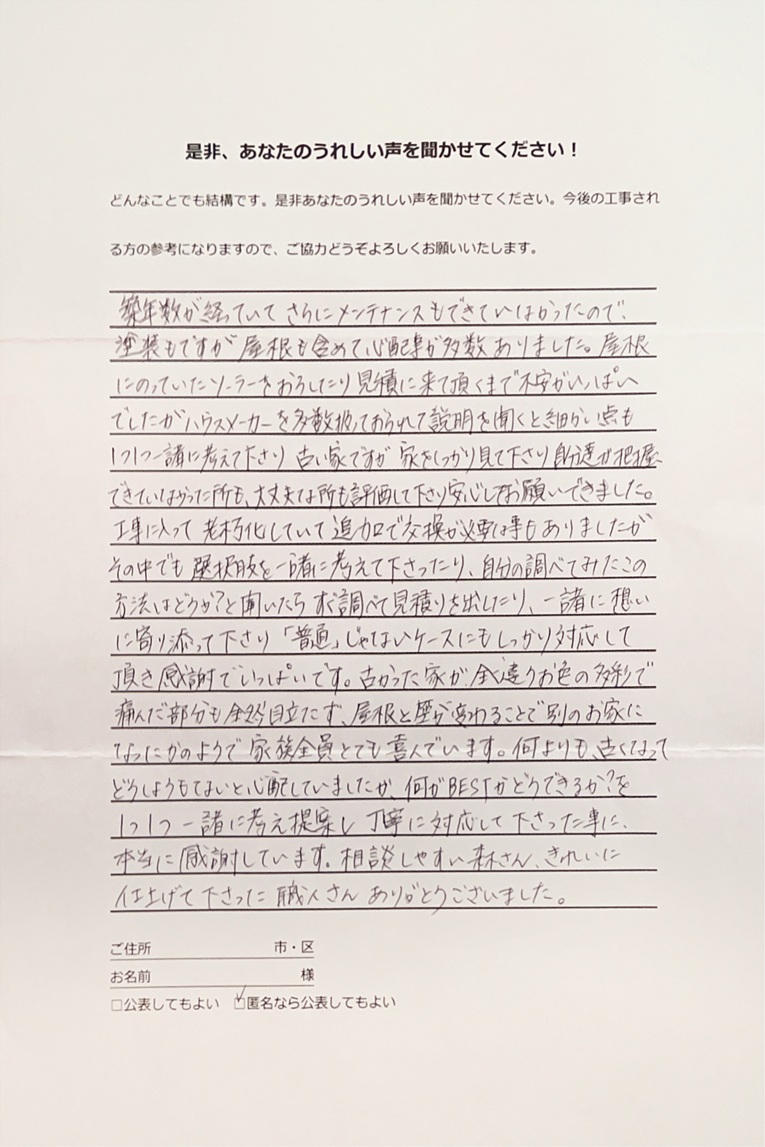 是非、あなたのうれしい声を聞かせてください！
どんなことでも結構です。是非あなたのうれしい声を聞かせてください。今後の工事され
る方の参考になりますので、ご協力どうぞよろしくお願いいたします。
築年数が経っていて さらにメンテナンスもできていなかったので、
塗装もですが 屋根も含めて心配事が多数ありました。屋根
にのっていたソーラーをおろしたり 見積に来て頂くまで不安がいっぱい
でしたが ハウスメーカーを多数扱っておられて説明を聞くと細かい点も
1つ1つ一諸に考えて下さり 古い家ですが 家をしっかり見て下さり 自分達が把握
できていなかった所も、大丈夫な所も評価して下さり安心してお願いできました。
工事に入って 老朽化していて 追加で交換が必要な事もありましたが
その中でも 選択肢を一諸に考えて下さったり、自分の調べてみたこの
方法はどうか？と聞いたら すぐ調べて見積りを出したり、一諸に想い
に寄り添って下さり 「普通」じゃないケースにもしっかり対応して
頂き感謝でいっぱいです。古かった家が、全く違うお色の多彩で
痛んだ部分も全然目立たず、屋根と壁が変わることで別のお家に
なったかのようで 家族全員とても喜んでいます。何よりも、古くなって
どうしようもないと心配していましたが、何がBESTかどうできるか？を
1つ1つ 一諸に考え提案し 丁寧に対応して下さった事に、
本当に感謝しています。相談しやすい森さん、きれいに
仕上げて下さった 職人さん ありがとうございました。
ご住所 市・区
お名前 様
□公表してもよい ☑匿名なら公表してもよい